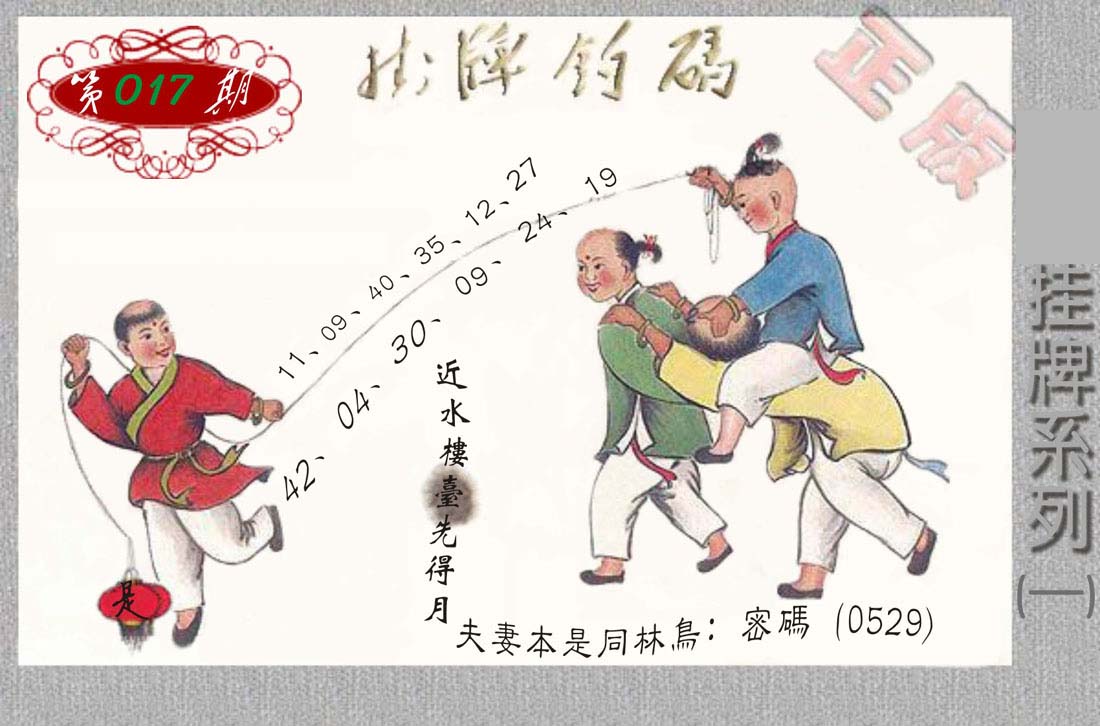 第017期
掛牌釣碼
正版
11、09、40、35、12、27
42、04、30、09、24、19
近水樓臺先得月
是
夫妻本是同林鳥：密碼（0529）
挂牌系列(一)